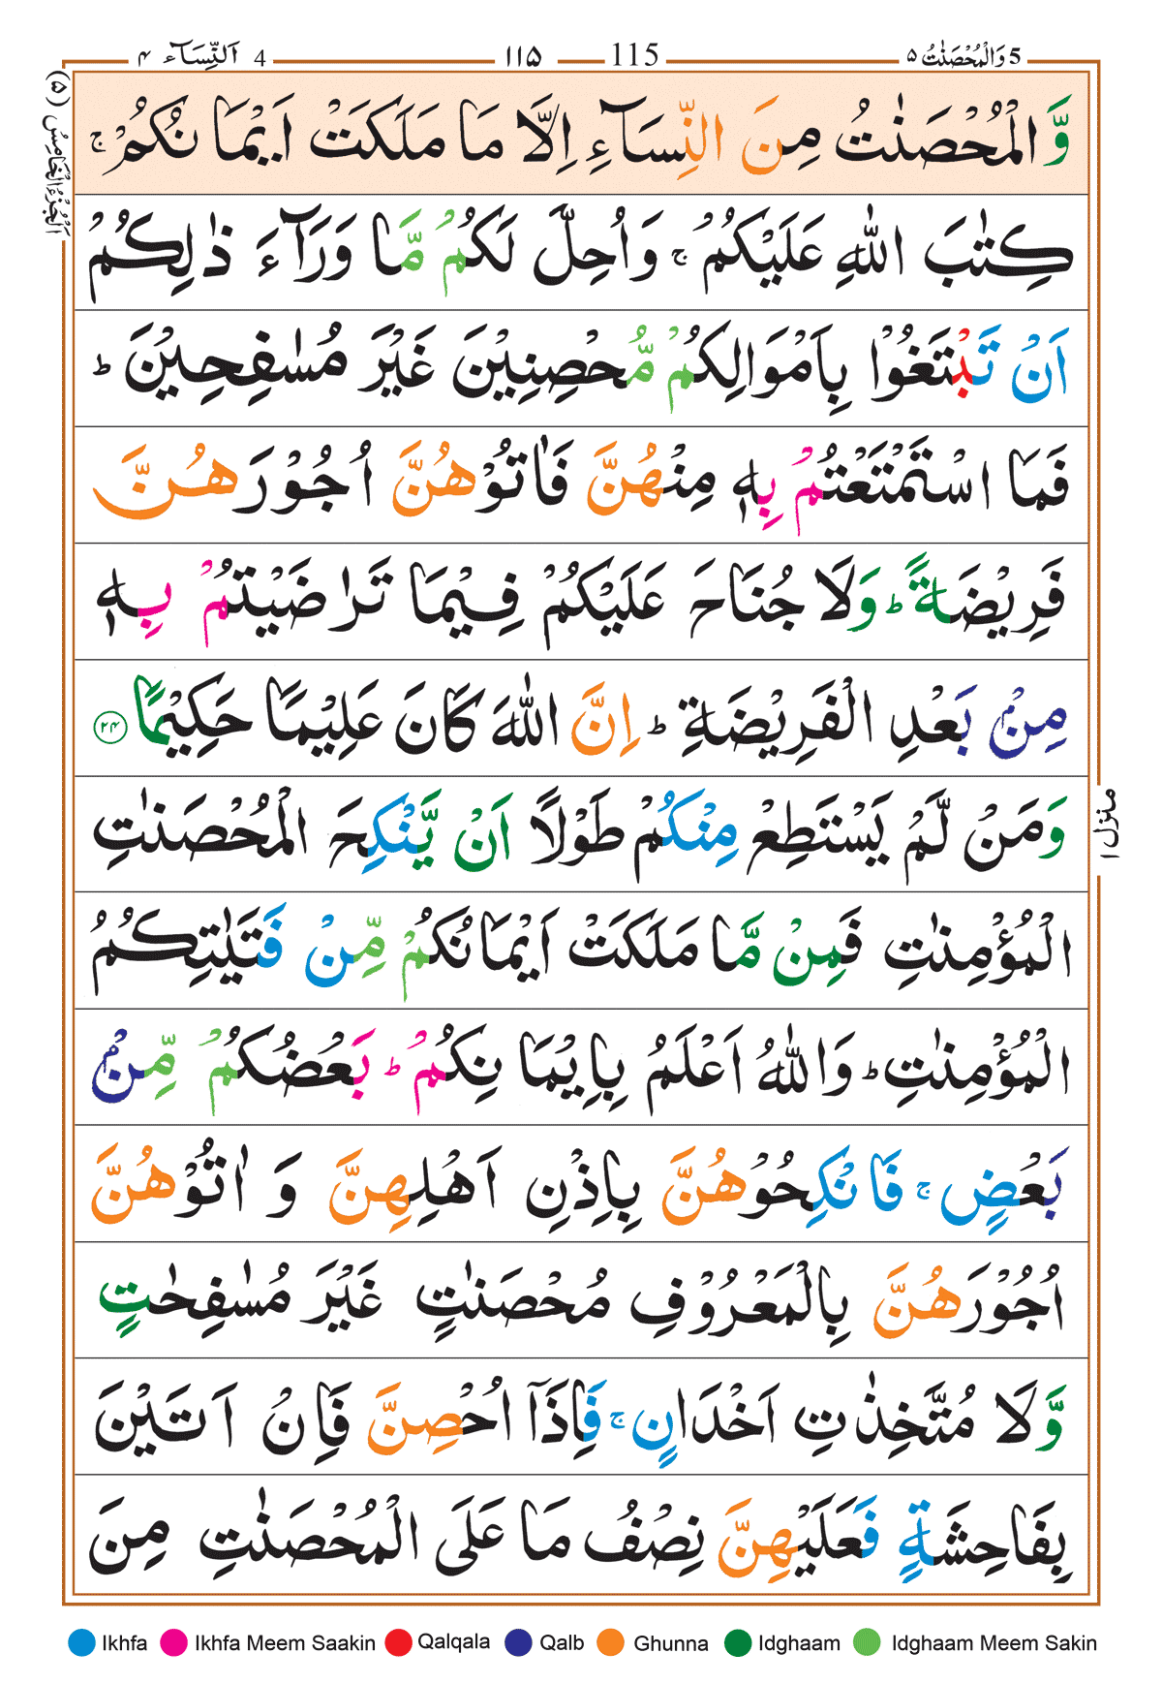 اَلنِّسَآء ۴ 4
۱۱۵ 115
5 وَالْمُحْصَنٰتُ ۵
اَلْجُزْءُ الْخَامِسُ (۵)
وَّالْمُحْصَنٰتُ مِنَ النِّسَآءِ اِلَّا مَا مَلَكَتْ اَيْمَانُكُمْ ۚ
كِتٰبَ اللّٰهِ عَلَيْكُمْ ۚ وَاُحِلَّ لَكُمْ مَّا وَرَآءَ ذٰلِكُمْ
اَنْ تَبْتَغُوْا بِاَمْوَالِكُمْ مُّحْصِنِيْنَ غَيْرَ مُسٰفِحِيْنَ ؕ
فَمَا اسْتَمْتَعْتُمْ بِهٖ مِنْهُنَّ فَاٰتُوْهُنَّ اُجُوْرَهُنَّ
فَرِيْضَةً ؕ وَلَا جُنَاحَ عَلَيْكُمْ فِيْمَا تَرٰضَيْتُمْ بِهٖ
مِنْۢ بَعْدِ الْفَرِيْضَةِ ؕ اِنَّ اللّٰهَ كَانَ عَلِيْمًا حَكِيْمًا ۲۴
وَمَنْ لَّمْ يَسْتَطِعْ مِنْكُمْ طَوْلًا اَنْ يَّنْكِحَ الْمُحْصَنٰتِ
الْمُؤْمِنٰتِ فَمِنْ مَّا مَلَكَتْ اَيْمَانُكُمْ مِّنْ فَتَيٰتِكُمُ
الْمُؤْمِنٰتِ ؕ وَاللّٰهُ اَعْلَمُ بِاِيْمَانِكُمْ ؕ بَعْضُكُمْ مِّنْۢ
بَعْضٍ ۚ فَانْكِحُوْهُنَّ بِاِذْنِ اَهْلِهِنَّ وَاٰتُوْهُنَّ
اُجُوْرَهُنَّ بِالْمَعْرُوْفِ مُحْصَنٰتٍ غَيْرَ مُسٰفِحٰتٍ
وَّلَا مُتَّخِذٰتِ اَخْدَانٍ ۚ فَاِذَاۤ اُحْصِنَّ فَاِنْ اَتَيْنَ
بِفَاحِشَةٍ فَعَلَيْهِنَّ نِصْفُ مَا عَلَى الْمُحْصَنٰتِ مِنَ
منزل ۱
Ikhfa Ikhfa Meem Saakin Qalqala Qalb Ghunna Idghaam Idghaam Meem Sakin